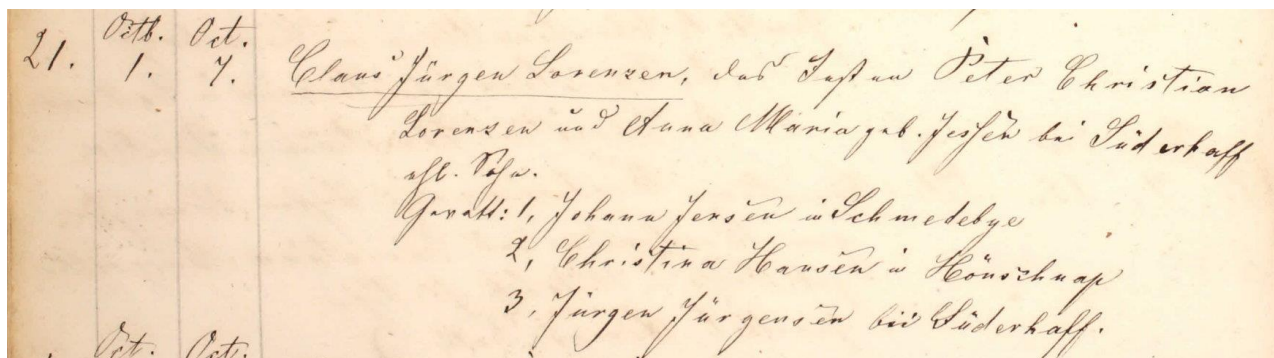 Octb. Oct.
21. 1. 7. Claus Jürgen Lorenzen, des Insten Peter Christian
Lorenzen und Anna Maria geb. Jessen bei Süderhaff
ehl. Sohn.
Gevatt: 1, Johann Jensen in Schmedebye
2, Christina Hansen in Hönschnap
3, Jürgen Jürgensen bei Süderhaff.
Oct. Oct.